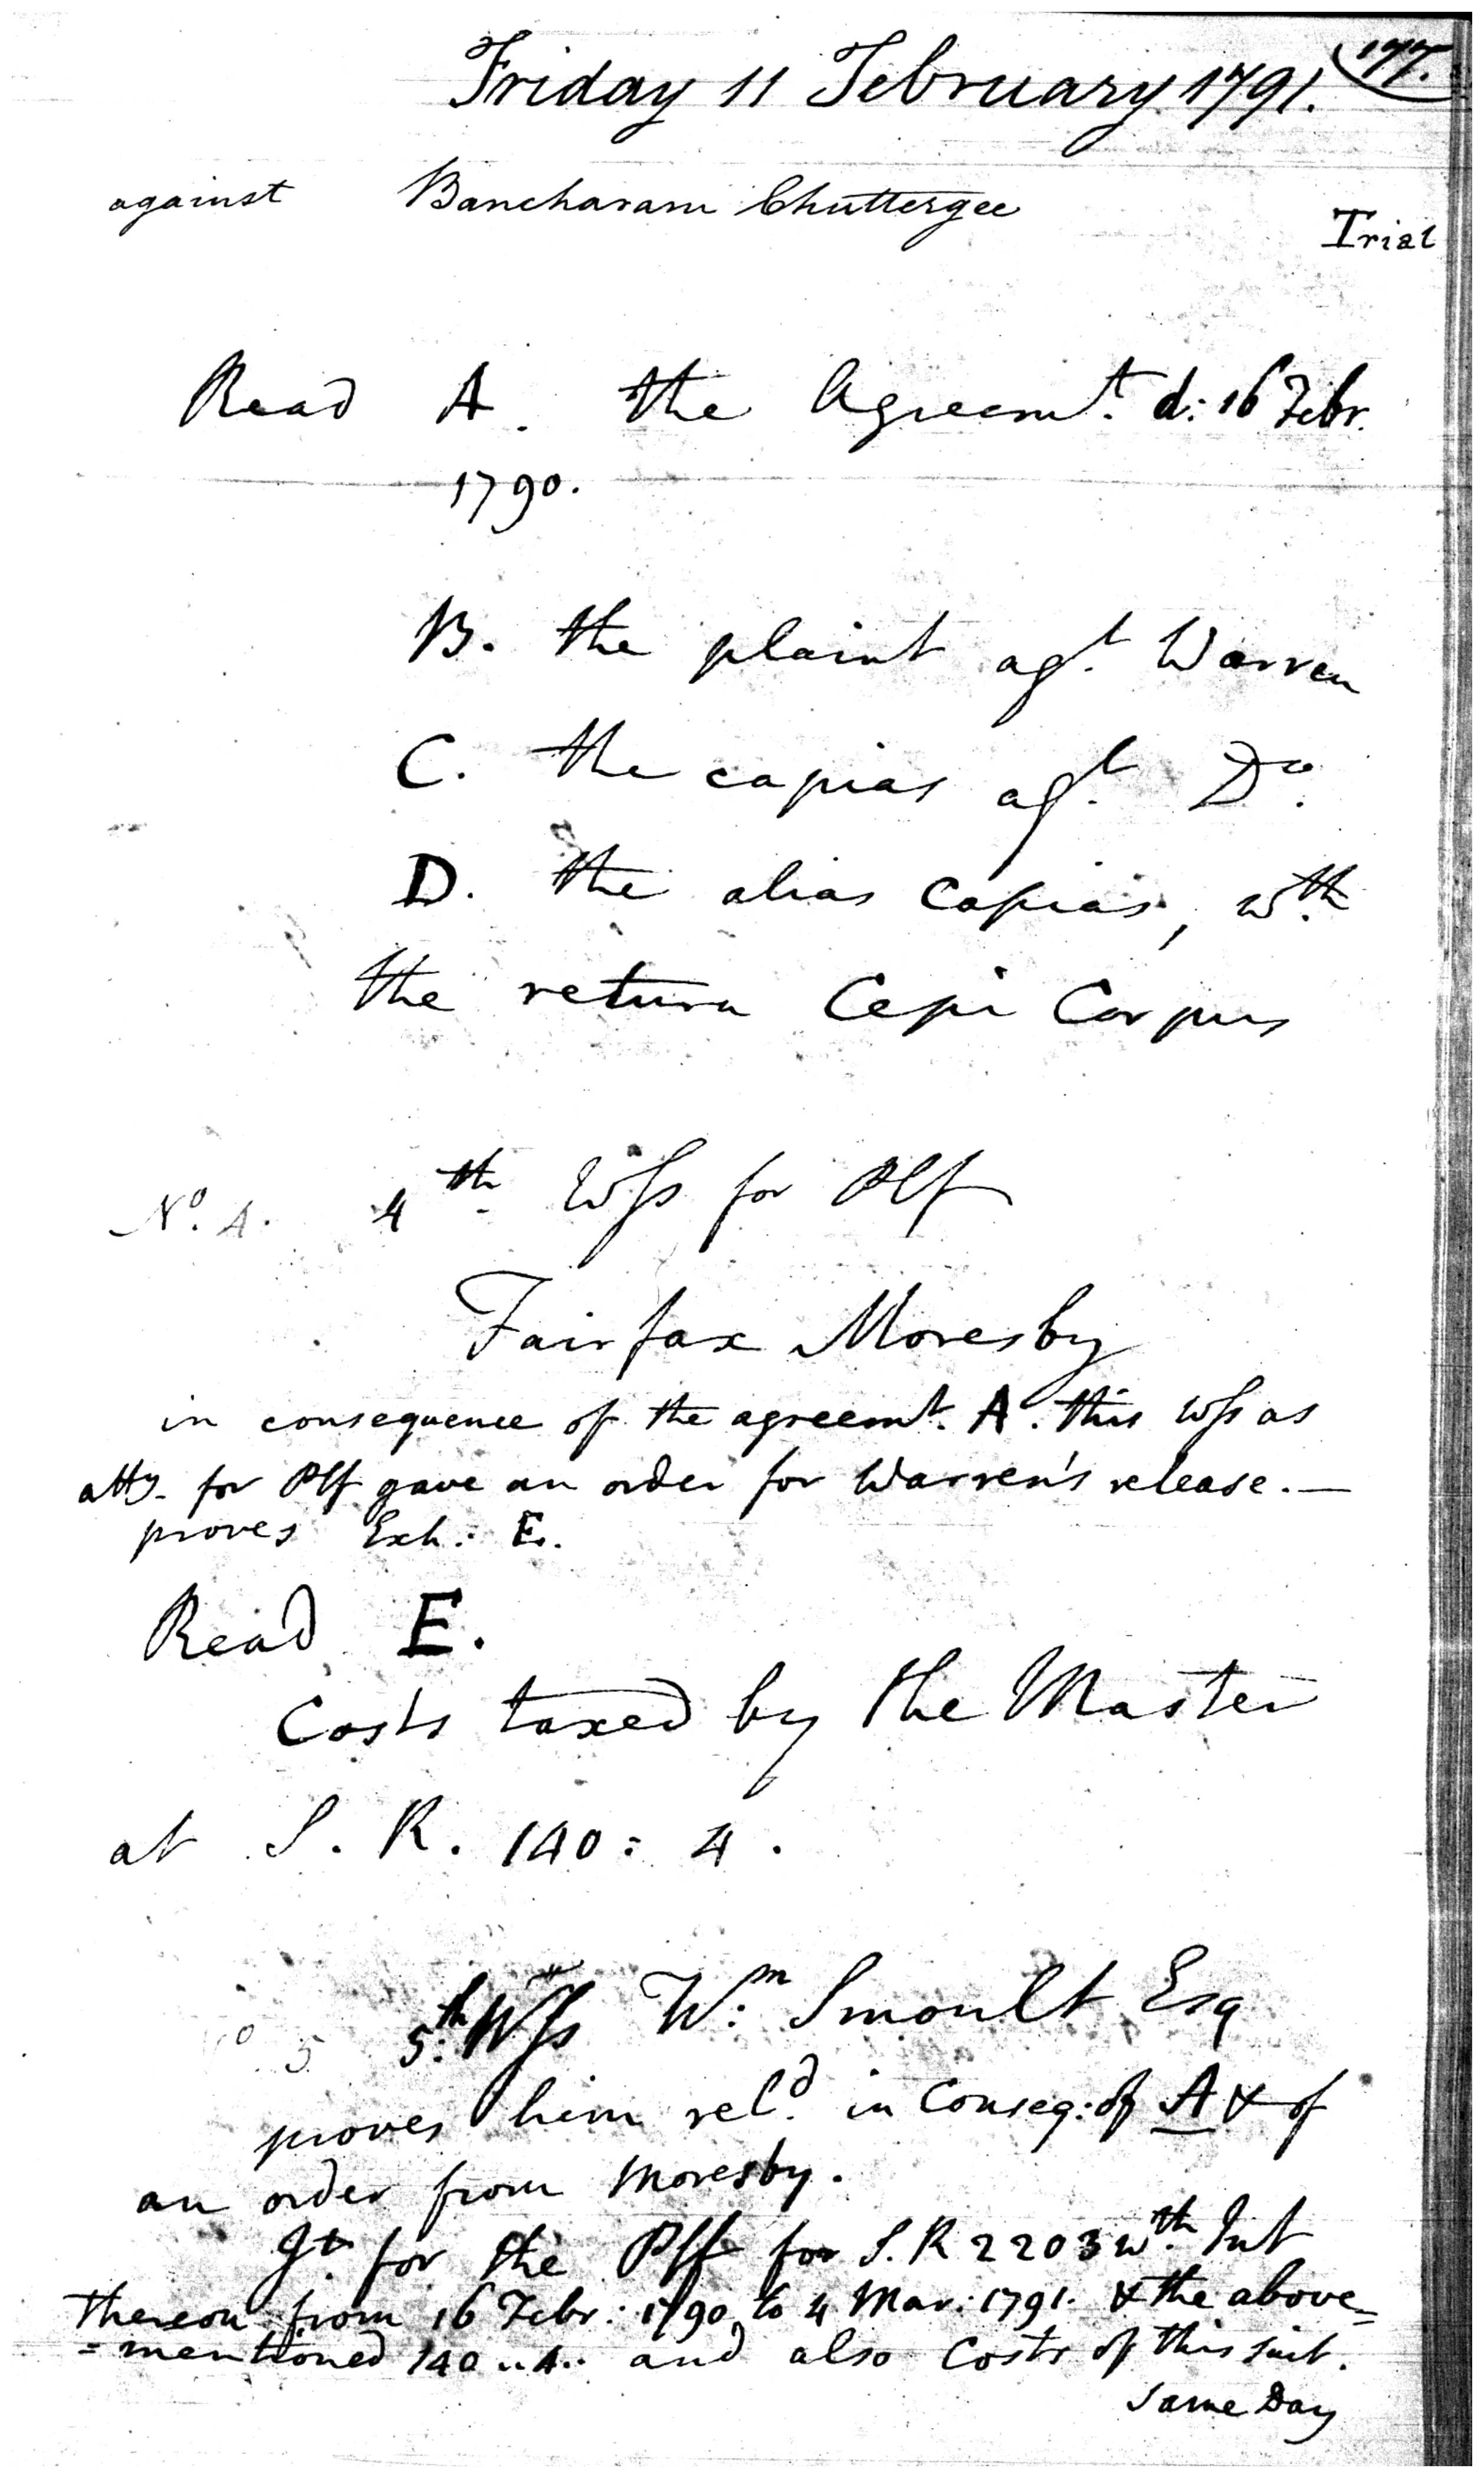 177.
Friday 11 February 1791.
against Bancharam Chuttergee
Trial
Read A. the Agreemt. d: 16 Febr.
1790.
B. the plaint agt. Warren
C. the capias agt. Do.
D. the alias Capias, wth
the return Cepi Corpus
No. 4. 4th Wss for Plf
Fairfax Moresby
in consequence of the agreemt. A. this Wss as
atty. for Plf gave an order for Warren's release. —
proves Exh: E.
Read E.
Costs taxed by the Master
at S. R. 140: 4.
o 5 5th: Wss Wm: Smoult Esq
proves him reld. in Conseq: of A & of
an order from Moresby.
Jt. for the Plf for S. R 2203 wth. Int
thereon from 16 Febr: 1790 to 4 Mar: 1791. & the above=
=mentioned 140..4.. and also Costs of this suit.
Same Day